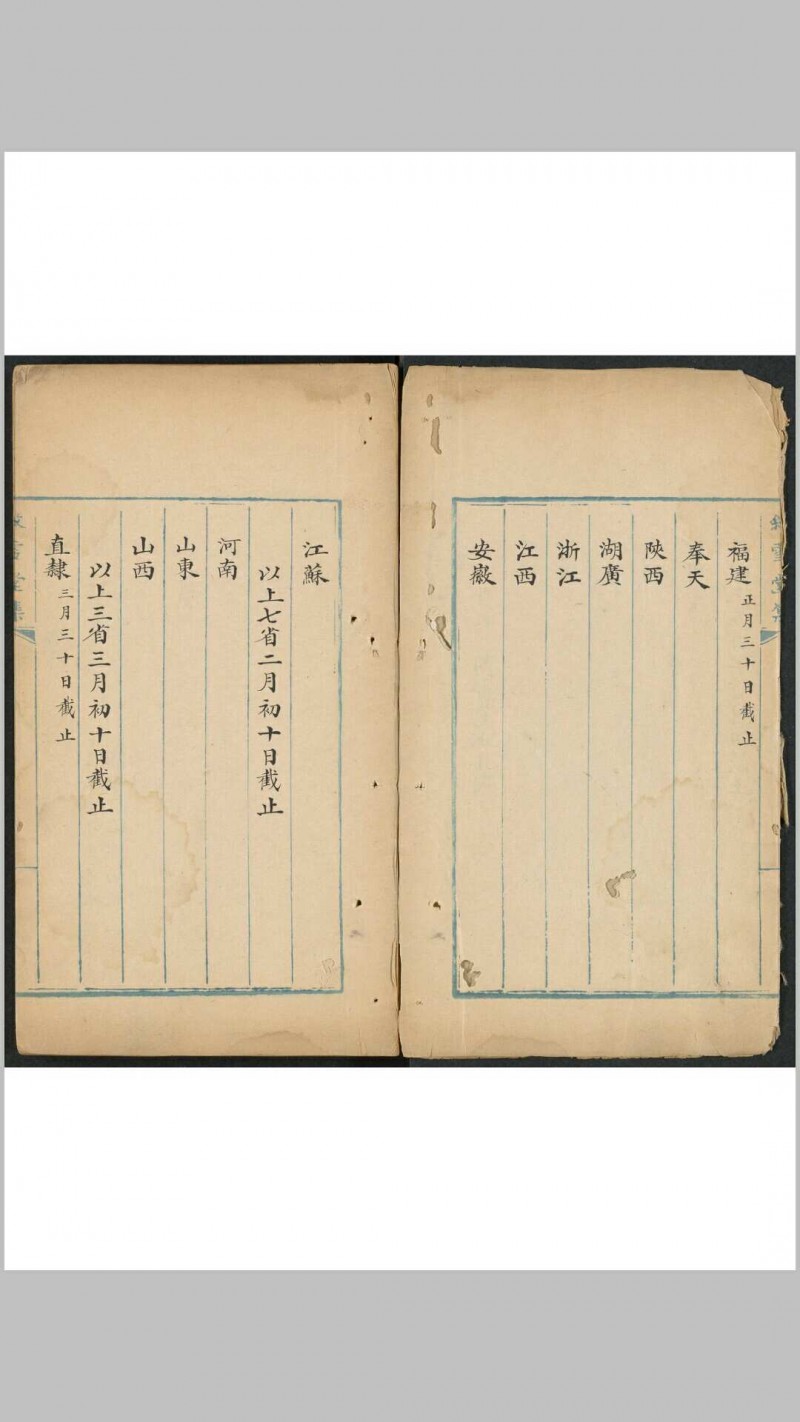 福建 正月三十日截止
奉天
陝西
湖廣
浙江
江西
安徽
江蘇
以上七省二月初十日截止
河南
山東
山西
以上三省三月初十日截止
直隸 三月三十日截止